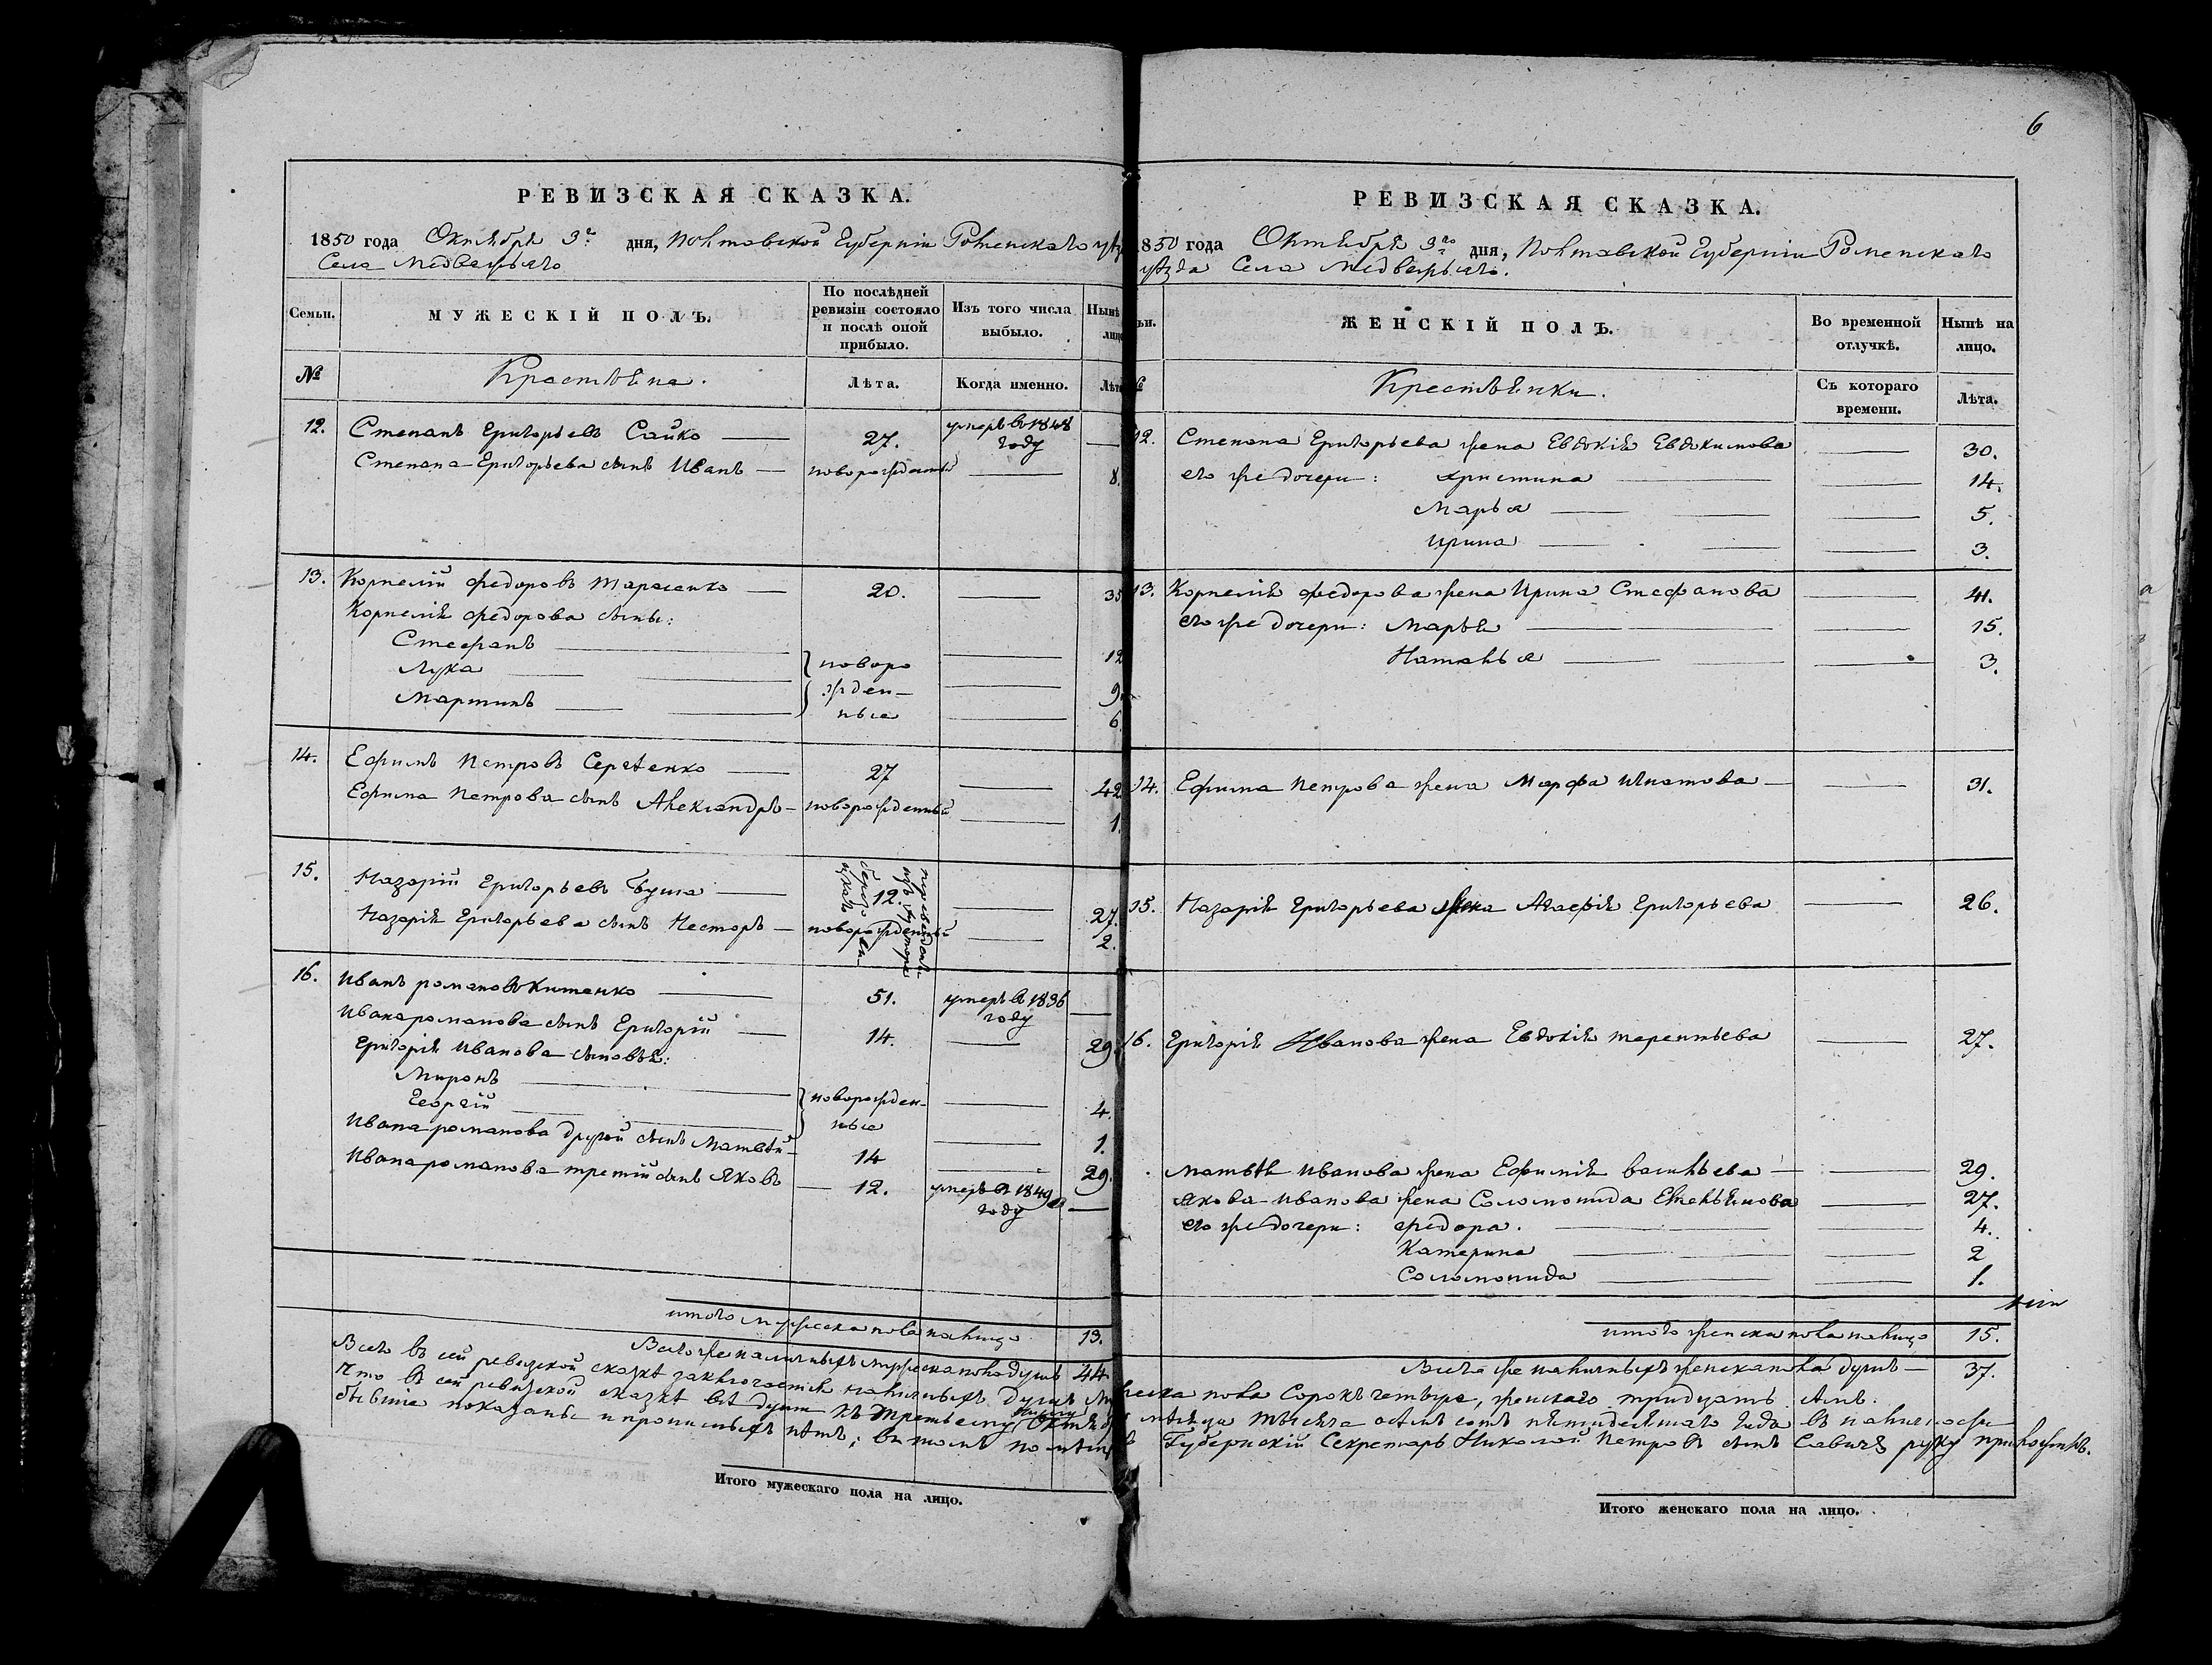 РЕВИЗСКАЯ СКАЗКА.
1850 года Октября 3го дня, Полтавской Губерніи Роменскаго
Села Медвежьяго
Семьи. МУЖЕСКІЙ ПОЛЪ. По послѣдней ревизіи состояло и послѣ оной прибыло. Изъ того числа выбыло. Нынѣ
№ Крестьяне. Лѣта. Когда именно.
12. Степанъ Григорьевъ Сайко 27. умеръ в 1848 году
Степана Григорьева сынъ Иванъ новорожденный 8.
13. Корнелій Федоровъ Тарасенко 20. 35
Корнелія Федорова сыны:
Стефанъ 12
Лука новорожденные 9.
Мартинъ 6
14. Ефимъ Петровъ Сергѣенко 27 42
Ефима Петрова сынъ Александръ новорожденный 1.
15. Назарій Григорьевъ Буша 12. 27.
Назарія Григорьева сынъ Несторъ новорожденный 2.
16. Иванъ Романовъ Китенко 51. умеръ в 1836 году
Ивана Романова сынъ Григорій 14. 29
Григорія Иванова сыновья:
Миронъ новорожденные 4.
Георгій 1.
Ивана Романова другой сынъ Матвѣй 14 29.
Ивана Романова третій сынъ Яковъ 12. умеръ в 1849 году
итого мужеска пола налицо 13.
Всего же наличныхъ мужеска пола душъ 44
Всего въ сей ревизской сказкѣ заключается наличныхъ душъ
Что въ сей ревизской сказкѣ всѣ души къ третьему числу
бывшие показаны и прописныхъ нѣтъ; въ томъ
Итого мужескаго пола на лицо.
6
РЕВИЗСКАЯ СКАЗКА.
1850 года Октября 3го дня, Полтавской Губерніи Роменскаго
уѣзда Села Медвежьяго.
ЖЕНСКІЙ ПОЛЪ. Во временной отлучкѣ. Нынѣ на лицо.
Крестьянки. Съ котораго времени. Лѣта.
12. Степана Григорьева жена Евдокія Евдокимова 30.
его же дочери: Христина 14.
Марья 5.
Ирина 3.
13. Корнелія Федорова жена Ирина Стефанова 41.
его же дочери: Марья 15.
Наталья 3.
14. Ефима Петрова жена Марфа Игнатова 31.
15. Назарія Григорьева жена Агафія Григорьева 26.
16. Григорія Иванова жена Евдокія Терентьева 27.
Матвѣя Иванова жена Ефимія Васильева 29.
Якова Иванова жена Соломонида Емельянова 27.
его же дочери: Федора. 4.
Катерина 2
Соломонида 1.
итого женска пола налицо 15.
Всего же наличныхъ женска пола душъ 37.
пола Сорокъ четыре, женскаго тридцать семь.
мѣсяца тысяча осемь сотъ пятидесятаго года въ наличности
Губернскій Секретарь Николай Петровъ сынъ Савичъ руку приложилъ.
Итого женскаго пола на лицо.